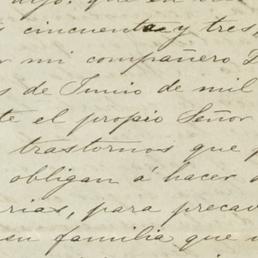 dijo: que en
cincuenta y tres,
mi compañero D
s de Junio de mil
te el propio Señor
trastornos que p
obligan á hacer
rias, para precav
su familia que